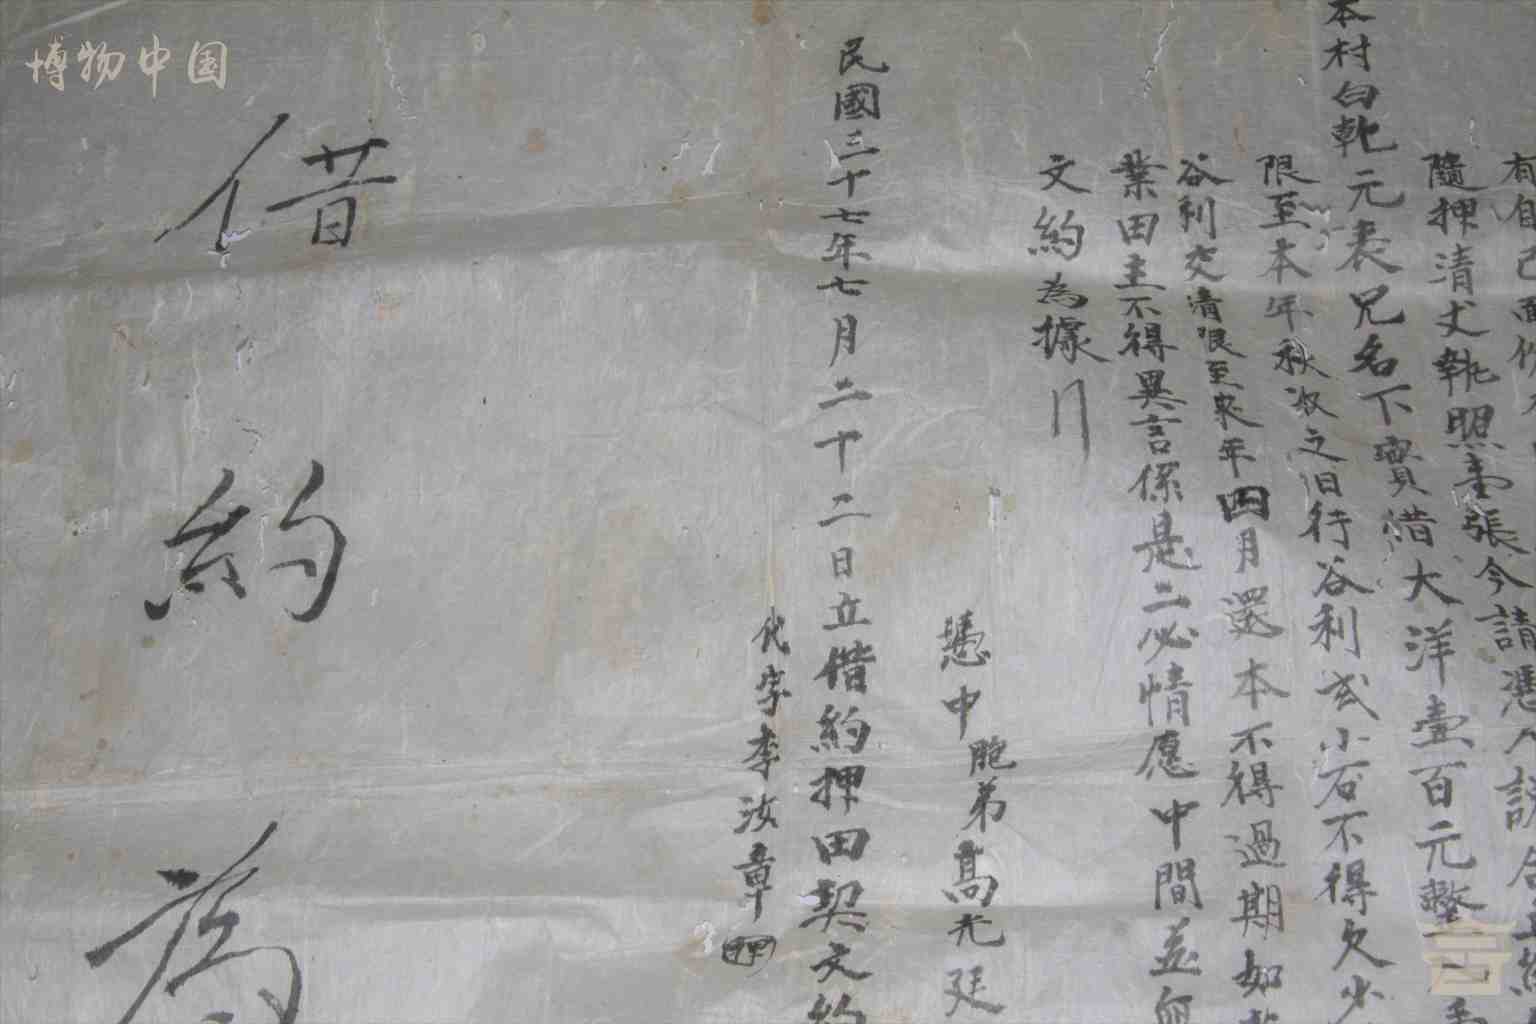 博物中国
有自己面份
隨押清丈執照壹張今請憑人訪
本村白乾元表兄名下實借大洋壹百元整
限至本年秋收之旧行谷利弍小石不得欠少
谷利交清限至来年四月還本不得過期如
業田主不得異言係是二必情愿中間並無
文約為據
憑中胞弟高光廷
民國三十七年七月二十二日立借約押田契文約
代字李汝章押
借約為